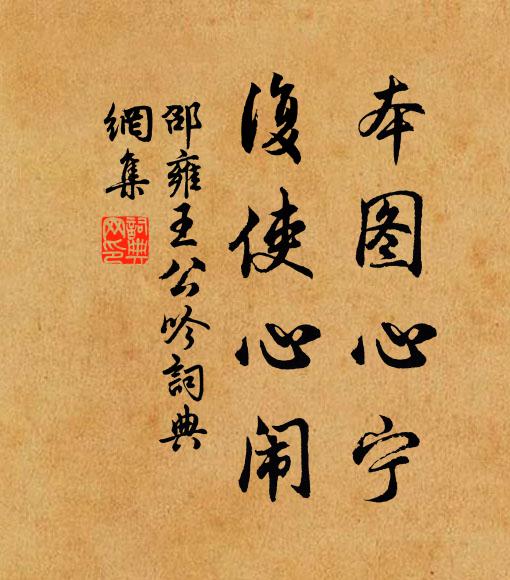 本图心宁
复使心闹
邵雍王公吟詞典
網集
詞典
网印